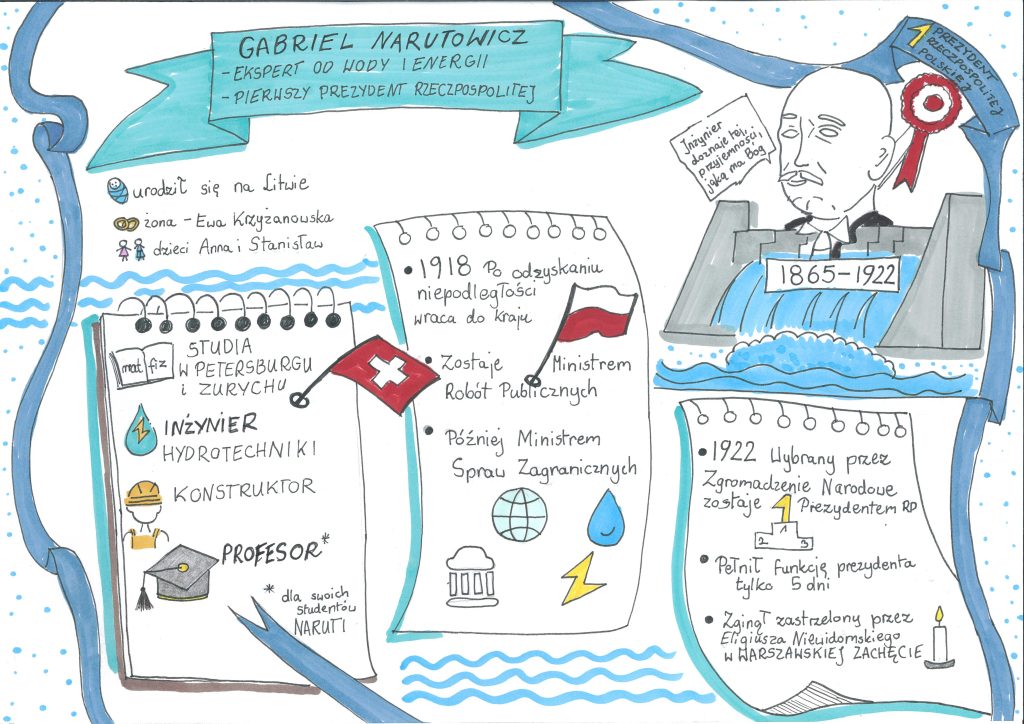 GABRIEL NARUTOWICZ
- EKSPERT OD WODY I ENERGII
- PIERWSZY PREZYDENT RZECZPOSPOLITEJ
1 PREZYDENT
RZECZPOSPOLITEJ
POLSKIEJ
Inżynier
doznaje tej
przyjemności,
jaką ma Bóg
1865-1922
urodził się na Litwie
żona - Ewa Krzyżanowska
dzieci Anna i Stanisław
mat fiz
STUDIA
W PETERSBURGU
i ZURYCHU
INŻYNIER
HYDROTECHNIKI
KONSTRUKTOR
PROFESOR*
* dla swoich
studentów
NARUTI
• 1918 Po odzyskaniu
niepodległości
wraca do kraju
• Zostaje Ministrem
Robót Publicznych
• Później Ministrem
Spraw Zagranicznych
• 1922 Wybrany przez
Zgromadzenie Narodowe
zostaje 1 Prezydentem RP
2 1 3
• Pełnił funkcję prezydenta
tylko 5 dni
• Zginął zastrzelony przez
Eligiusza Niewidomskiego
W WARSZAWSKIEJ ZACHĘCIE